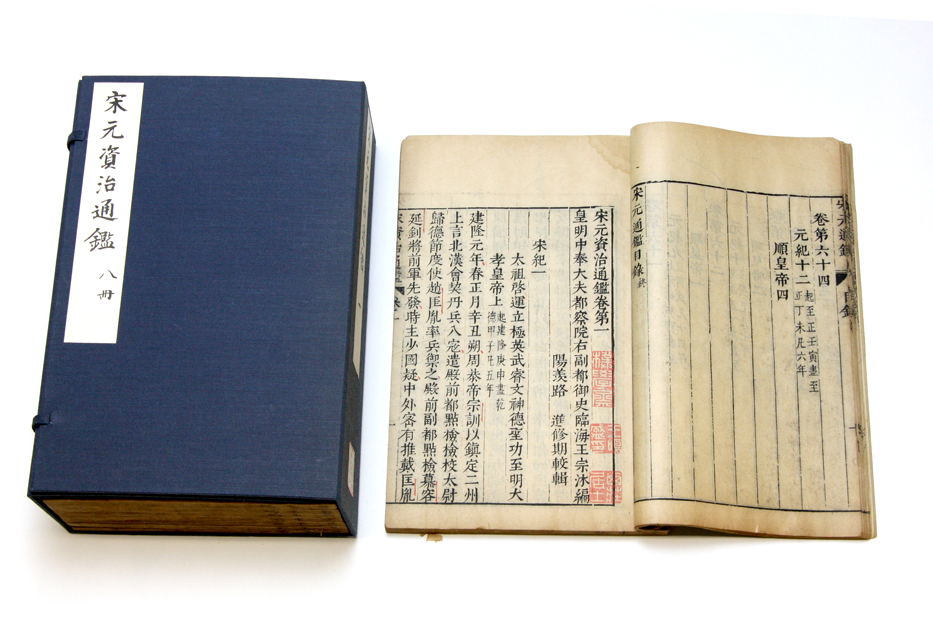 宋元資治通鑑 八冊
宋元通鑑
卷第六十四
元紀十二
起至正壬寅盡至
正丁未凡六年
順皇帝四
宋元通鑑目錄 終
宋元資治通鑑卷第一
皇明中奉大夫都察院右副都御史臨海王宗沐編
陽羨路 進修期較輯
宋紀一
太祖啓運立極英武睿文神德聖功至明大
孝皇帝上
起建隆庚申盡乾
德甲子凡五年
建隆元年春正月辛丑朔周恭帝宗訓以鎮定二州
上言北漢會契丹兵入宼遣殿前都點檢檢校太尉
歸德節度使趙匡胤率兵禦之殿前副都點檢慕容
延釗將前軍先發時主少國疑中外密有推戴匡胤